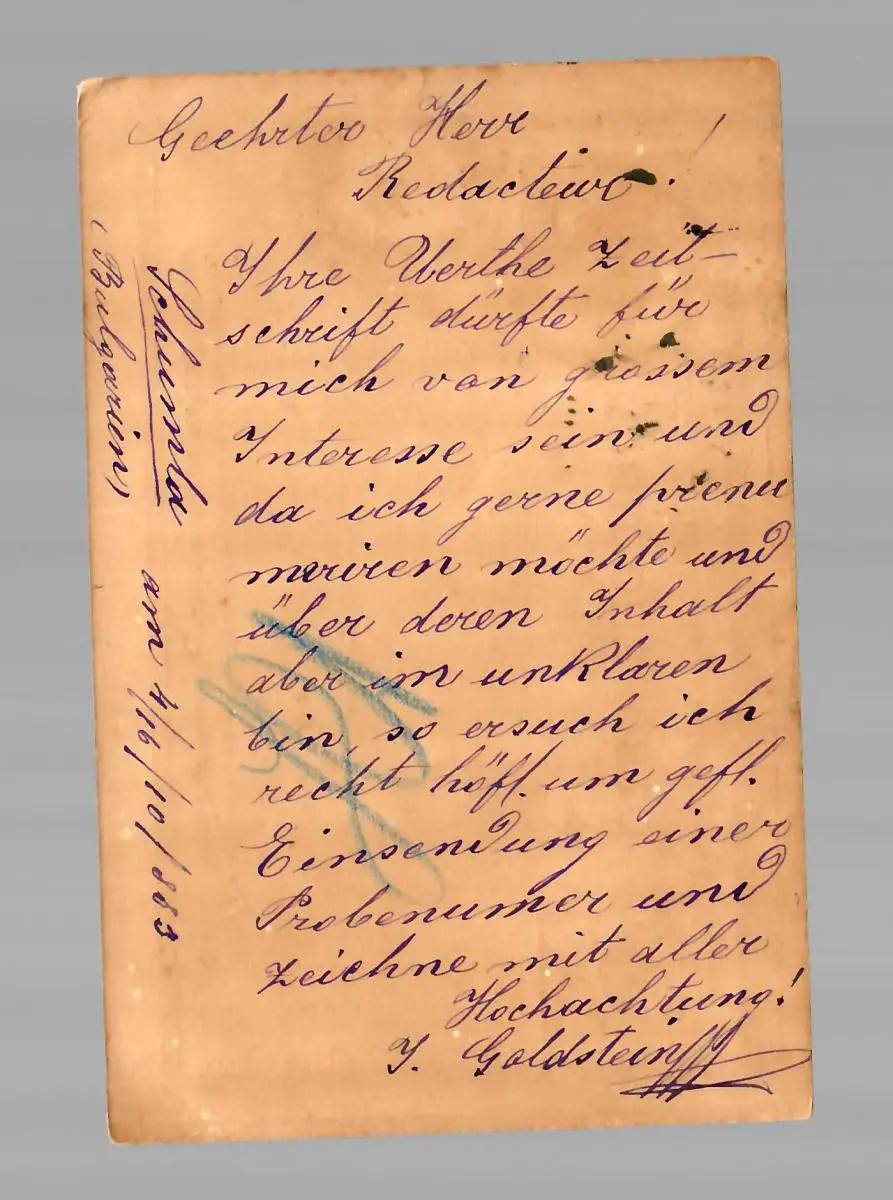 Geehrter Herr !
Redacteur !
Ihre Werthe Zeit-
schrift dürfte für
mich von grossem
Interesse sein und
da ich gerne prenu
meriren möchte und
über deren Inhalt
aber im unklaren
bin, so ersuch ich
recht höfl. um gefl.
Einsendung einer
Probenumer und
zeichne mit aller
Hochachtung!
J. Goldstein
Schumla am 4/16/10/883
(Bulgarien)